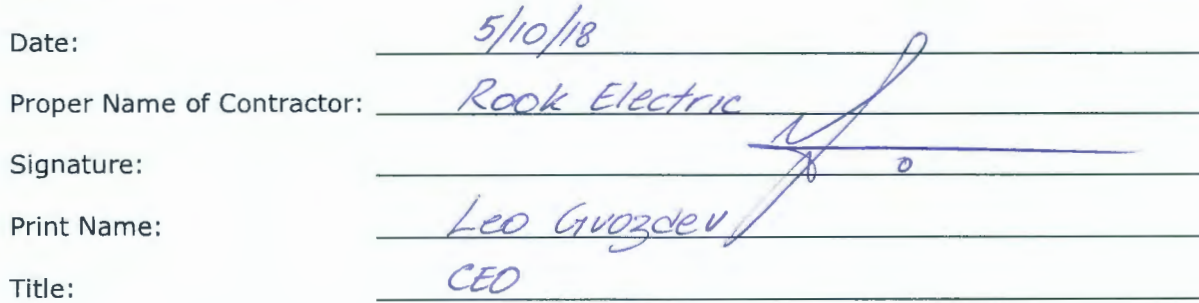 Date: 5/10/18
Proper Name of Contractor: Rook Electric
Signature:
Print Name: Leo Gvozdev
Title: CEO